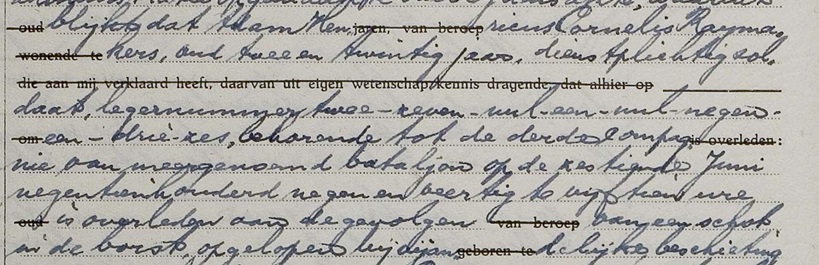 oud blijkt dat Adam Hen jaren, van beroep ricus Cornelis Rayma-
wonende te kers, oud twee en twintig jaar, dienstplichtig sol-
die aan mij verklaard heeft, daarvan uit eigen wetenschap kennis dragende, dat alhier op
daat, legernummer twee-zeven-nul-een-nul-negen-
om een-drie-zes, behorende tot de derde Compag is overleden:
nie van meergenoemd bataljon op de zestiende Juni
negentienhonderd negen en veertig te vijftien ure
oud is overleden aan de gevolgen van beroep van een schot
in de borst, opgelopen bij vijan geboren te delijke beschieting